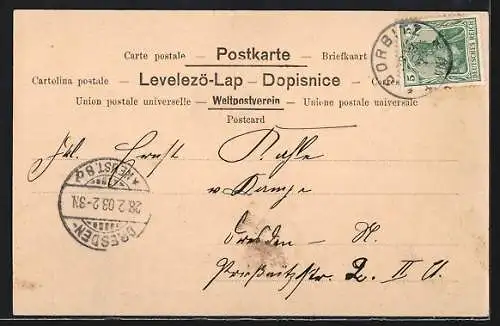 Carte postale – Postkarte – Briefkaart
Cartolina postale – Levelezö-Lap – Dopisnice –
Union postale universelle – Weltpostverein – Unione postale universale
Postcard
5 DEUTSCHES REICH 5
Ernst
v
Dresden – N.
Prießnitzstr. 2. II
DRESDEN-NEUST. 8
28.2.03.2-3N.